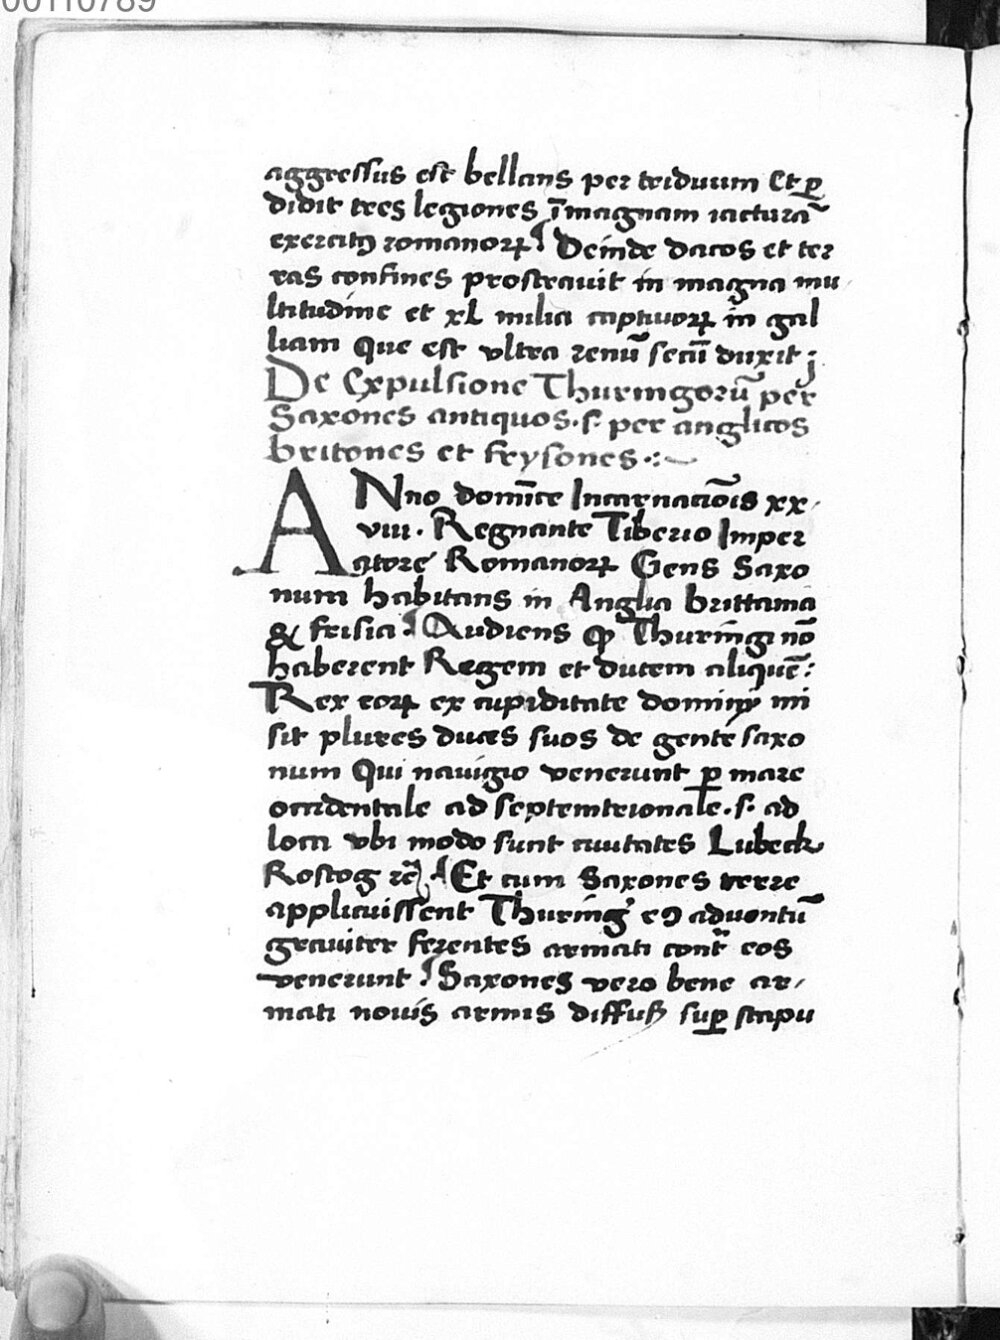 00110789
aggressus est bellans per triduum Et ꝑ
didit tres legiones ī magnam iacturā
exercitꝰ romanorꝝ Deinde dacos et ter
ras confines prostrauit in magna mu
ltitudine et xl milia captiuorꝝ in gal
liam Que est vltra renū secū duxit ;
De Expulsione Thuringorū per
Saxones antiquos . s . per anglicos
britones et frysones .:~
ANno domīce Incarnacōis xx
viii . Regnante Tiberio Imper
atore Romanorꝝ Gens Saxo
num habitans in Anglia brittania
& frisia Audiens ꝙ Thuringi nō
haberent Regem et ducem aliquē :
Rex eorꝝ ex cupiditate dominij mi
sit plures duces suos de gente saxo
num Qui nauigio venerunt ꝑ mare
occidentale ad septemtrionale . s . ad
loca vbi modo sunt ciuitates Lubeck
Rostog ꝛc̄ Et cum Saxones terre
applicuissent Thuring' eꝰ aduentū
grauiter ferentes armati cont͛ eos
venerunt Saxones vero bene ar-
mati nouis armis diffusꝭ suꝑ scapu